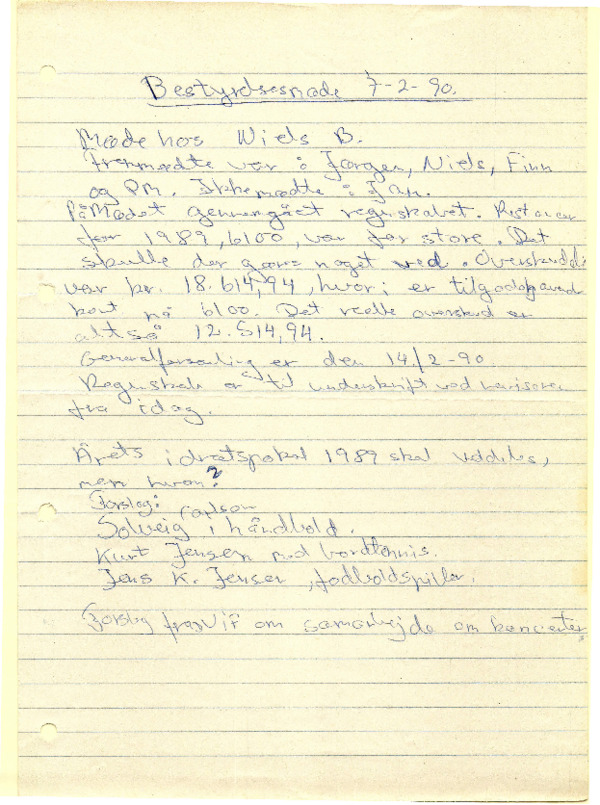 Bestyrelsesmøde 7-2-90.
Møde hos Niels B.
Fremmødte var : Jørgen, Niels, Finn
og PM. Ikke mødte : Jan.
På Mødet gennemgået regnskabet. Restancer
for 1989, 6100, var for store. Det
skulle der gøres noget ved. Overskuddet
var kr. 18.614,94, hvori er tilgodehavende
kont på 6100. Det reelle overskud er
altså 12.514,94.
Generalforsamling er den 14/2-90
Regnskab er til underskrift ved revisoren
fra idag.
Årets idrætspokal 1989 skal uddeles,
men hvem?
Forslag:
Solveig Carlson i håndbold.
Kurt Jensen ved bordtennis.
Jens K. Jensen, fodboldspiller.
Forslag fra VIF om samarbejde om koncerter.